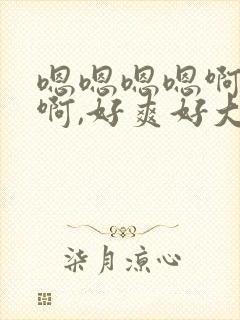 嗯嗯嗯嗯啊
啊,好爽好大
柒月凉心